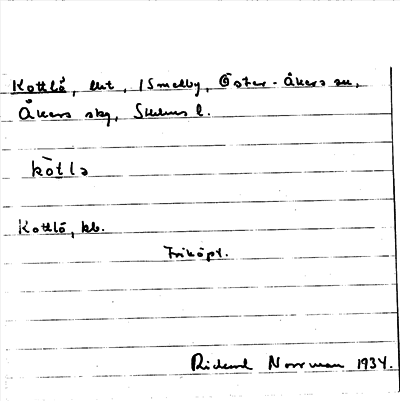 Kottlå, lht, Smedby, Öster-Åkers sn,
Åkers skg, Sthlms l.
kòtla
Kottlö, kb.
Friköpt.
Rickard Norrman 1934.